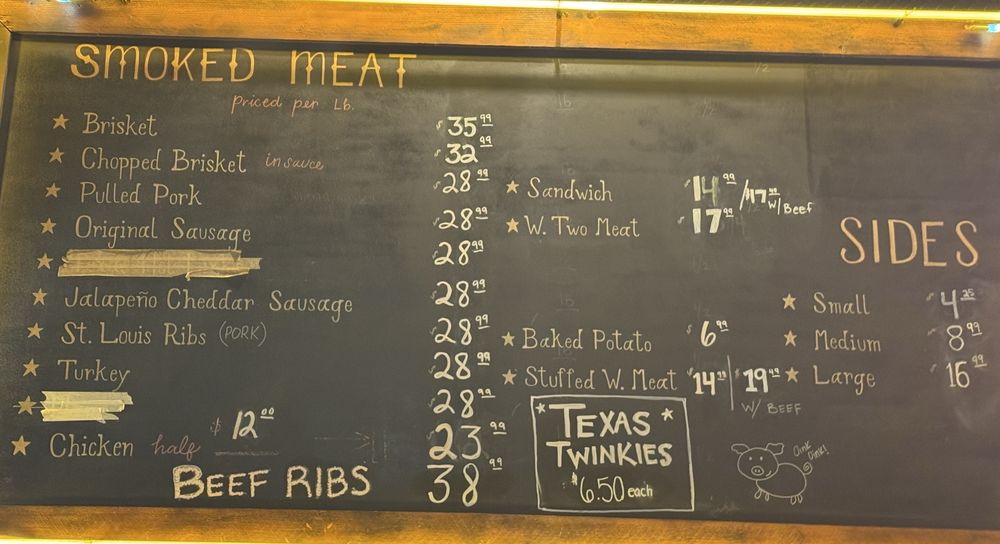 SMOKED MEAT
Priced per Lb.
★ Brisket $35.99
★ Chopped Brisket in sauce $32.99
★ Pulled Pork $28.99
★ Original Sausage $28.99
★ $28.99
★ Jalapeño Cheddar Sausage $28.99
★ St. Louis Ribs (PORK) $28.99
★ Turkey $28.99
★ $28.99
★ Chicken half $12.00 23.99
BEEF RIBS 38.99
★ Sandwich $14.99 / 17.49 w/ Beef
★ W. Two Meat $17.99
★ Baked Potato $6.99
★ Stuffed W. Meat $14.99 | $19.49
W/ BEEF
★ TEXAS ★
TWINKIES
$6.50 each
SIDES
★ Small $4.25
★ Medium $8.99
★ Large $16.99
Oink
Oink!